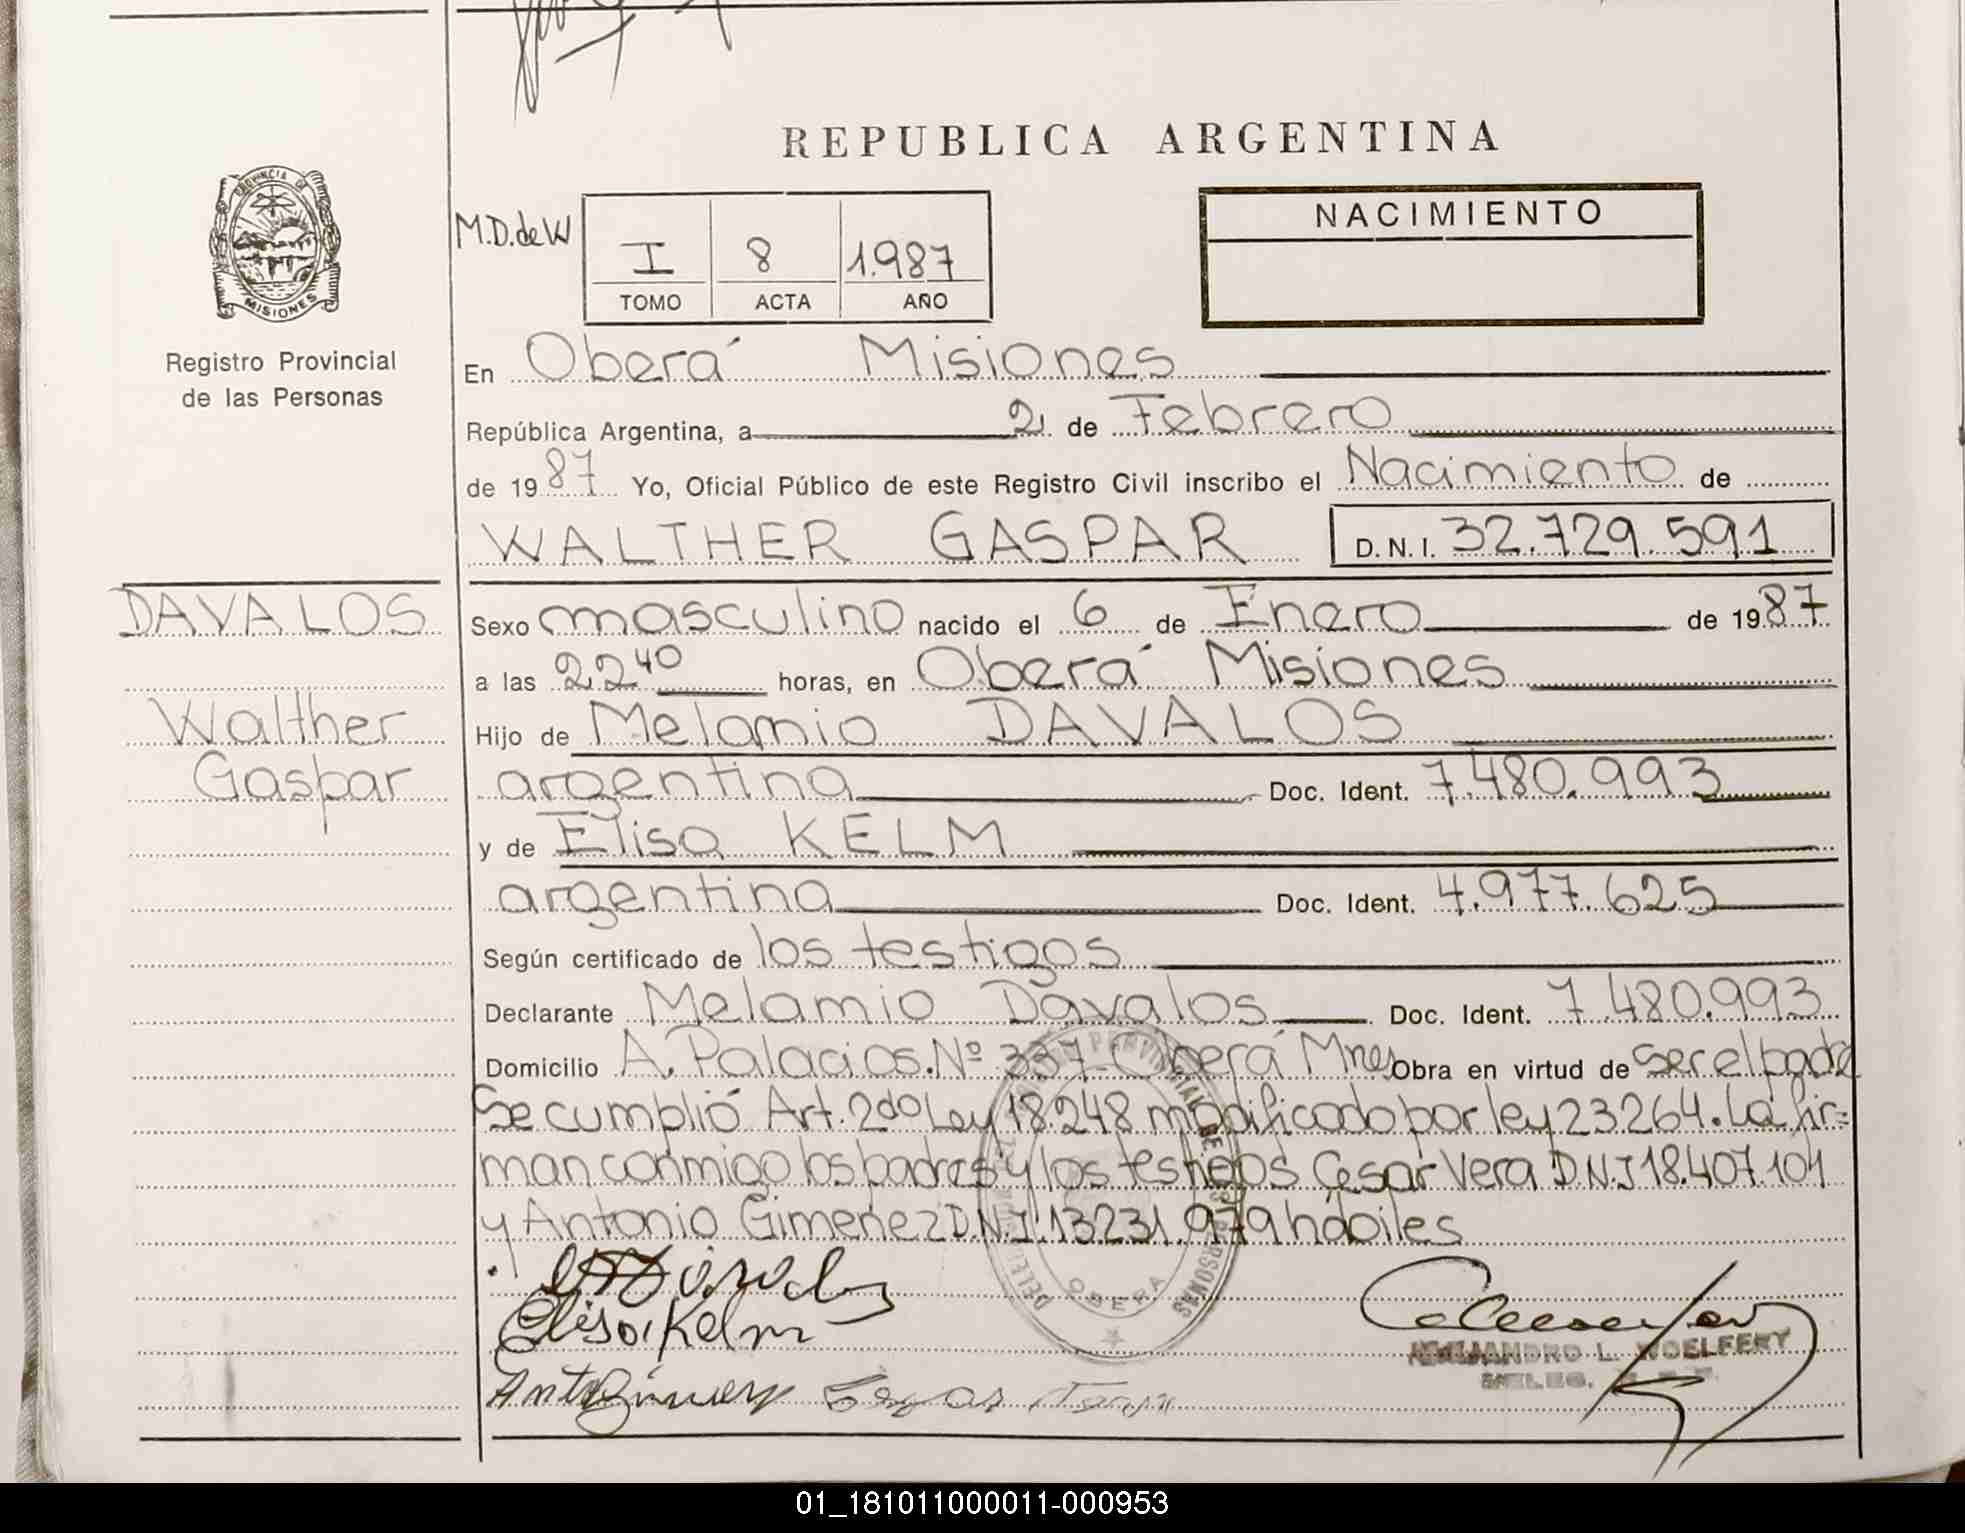 REPUBLICA ARGENTINA
PROVINCIA DE
MISIONES
Registro Provincial
de las Personas
M.D.deW
I 8 1.987
TOMO ACTA AÑO
NACIMIENTO
En Oberá Misiones
República Argentina, a 2 de Febrero
de 19 87 Yo, Oficial Público de este Registro Civil inscribo el Nacimiento de
WALTHER GASPAR D.N.I. 32.729.591
DAVALOS
Walther
Gaspar
Sexo masculino nacido el 6 de Enero de 19 87
a las 22 40 horas, en Oberá Misiones
Hijo de Melamio DAVALOS
argentina Doc. Ident. 7.480.993
y de Elisa KELM
argentina Doc. Ident. 4.977.625
Según certificado de los testigos
Declarante Melamio Davalos Doc. Ident. 7.480.993
Domicilio A. Palacios. Nº 337 Oberá Mnes Obra en virtud de ser el padre
Se cumplió Art. 2do Ley 18.248 modificado por ley 23264. La fir=
man conmigo los padres y los testigos Cesar Vera D.N.I 18.407.101
y Antonio Gimenez D.N.I. 13231.979 hábiles
Davalos
Elisa Kelm
OBERA
ALEJANDRO L. WOELFERT
01_181011000011-000953